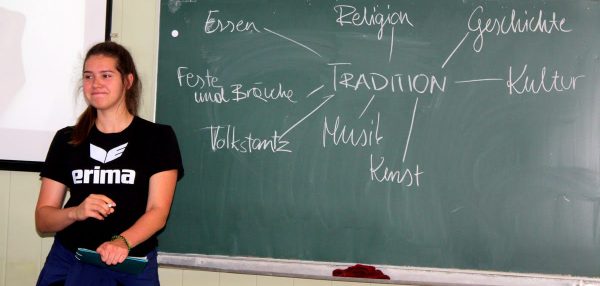 Essen
Religion
Geschichte
Feste
und Bräuche
TRADITION
Kultur
Volkstantz
Musik
Kunst
erima